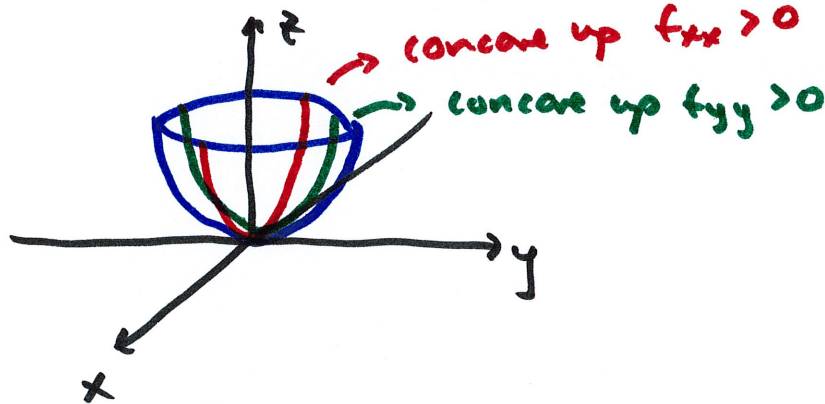 z
concave up fxx > 0
concave up fyy > 0
y
x